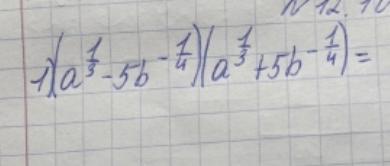 N 12.10
1) (a^{1/3} - 5b^{-1/4})(a^{1/3} + 5b^{-1/4}) =